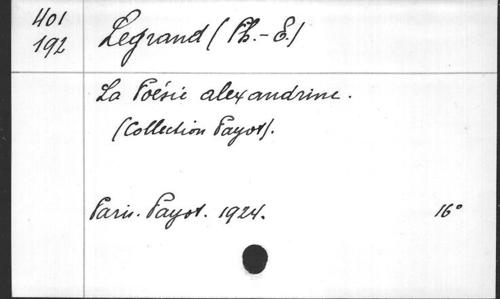 401
192
Legrand (Ph.-E.)
La Poésie alexandrine.
(Collection Payot).
Paris. Payot. 1924. 16°